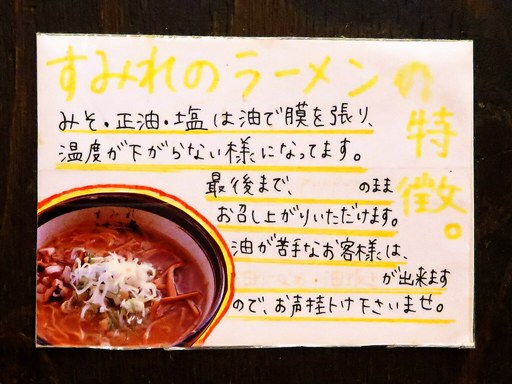 すみれのラーメンの
特徴。
みそ・正油・塩は油で膜を張り、
温度が下がらない様になってます。
最後まで、 のまま
お召し上がりいただけます。
油が苦手なお客様は、
が出来ます
ので、お声掛け下さいませ。
すみれ